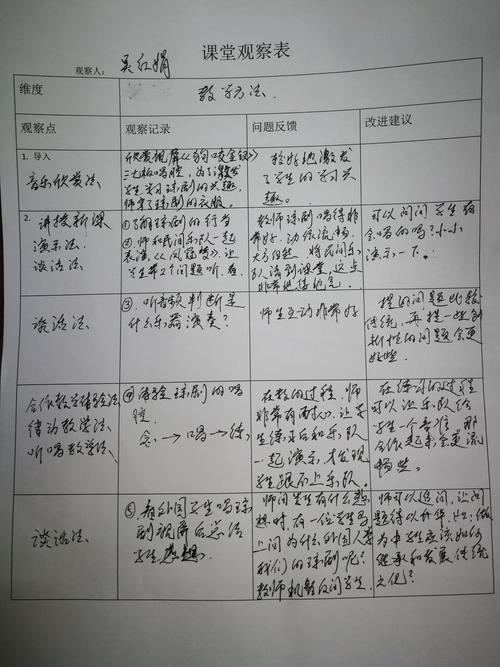 课堂观察表
观察人：吴红娟
维度
教学方法.
观察点
观察记录
问题反馈
改进建议
1. 导入
音乐欣赏法
欣赏视屏《狗咬金钗》
三大板唱腔，为了激发
学生学习琼剧的兴趣，
师穿了琼剧的衣服。
较好地激发
了学生的学习兴
趣。
2. 讲授新课
演示法.
谈话法
①了解琼剧的行当
②师和民间乐队一起
学生带2个问题听, 看
教师琼剧唱得非
常好. 功作流畅.
大方自然. 将民间乐
队请到课堂, 这点
非常值得的
可以问问学生有
会唱的吗? 小小
演示一下。
谈话法
③. 听音频判断是
什么乐器演奏？
师生互动非常好
提的问题比较
传统, 再提一些创
新性的问题会更
好些.
合作教学体验法
律动教学法
听唱教学法.
④体验琼剧的唱
腔
念. → 唱 → 练.
在教的过程. 师
非常有耐心. 让学
生练习后和乐队
一起演示, 才发现
学生跟不上乐队。
在练习的过程
可以让乐队给
学生一个音准. 那
合作起来会更流
畅些。
谈话法
⑤. 看外国学生唱琼
剧视屏后总结
学生感想.
师问学生有什么感
想时, 有一位学生马
上问为什么外国人学
我们的琼剧呢?
教师机智反问学生.
师可以追问, 让问
题得以升华. 如: 做
为中学生应该如何
继承和发展传统
文化?